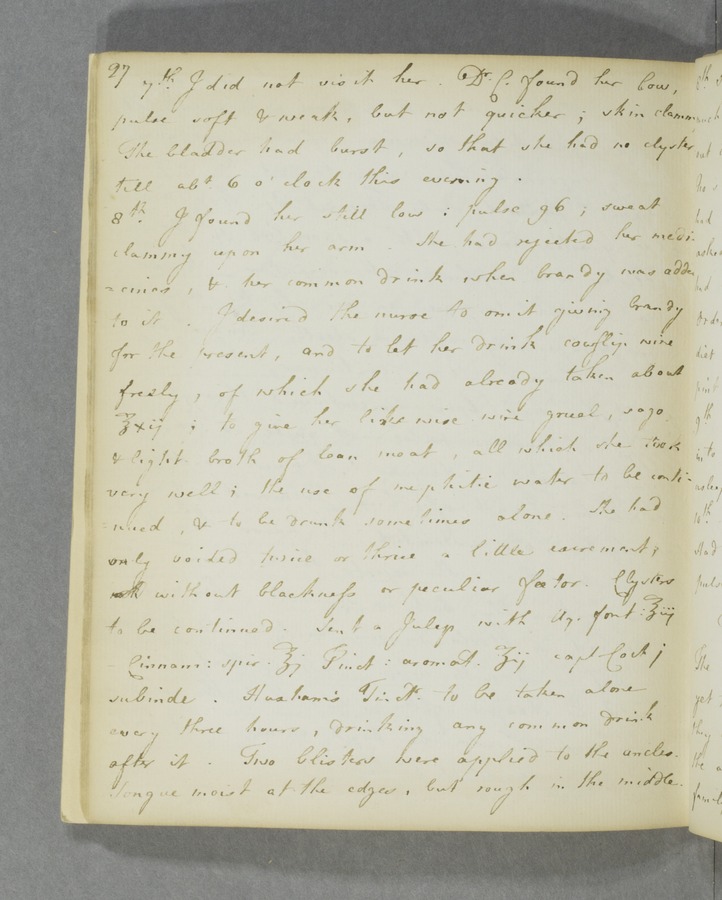 97
7th I did not visit her. Dr. C. found her low,
pulse soft & weak, but not quicker; skin clammy
The bladder had burst, so that she had no clyster
till abt. 6 o'clock this evening.
8th I found her still low: pulse 96; sweat
clammy upon her arm. She had rejected her medi-
=cines, & her common drink when brandy was added
to it. I desired the nurse to omit giving brandy
for the present, and to let her drink cowslip wine
freely, of which she had already taken about
℥xij; to give her likewise wine gruel, sago
& light broth of lean meat, all which she took
very well; the use of mephitic water to be conti-
=nued, & to be drunk sometimes alone. She had
only voided twice or thrice a little excrement,
without blackness or peculiar foetor. Clysters
to be continued. Sent a Julep with Aq. font: ℥iij
Cinnam: spir. ℥j Tinct: aromat. ℥ij capt Coch j
subinde. Huxham's Tinct. to be taken alone
every three hours, drinking any common drink
after it. Two blisters were applied to the ancles.
Tongue moist at the edges, but rough in the middle.